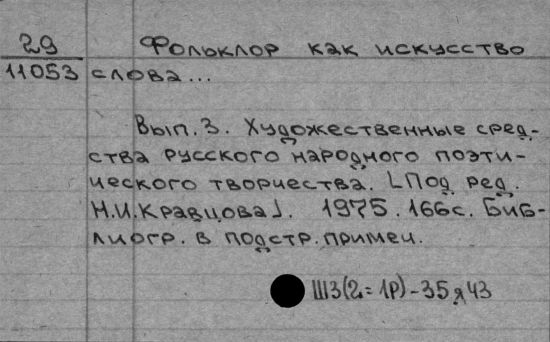 29 Фольклор как искусство
11053 слова...
Вып. 3. Художественные сред-
ства русского народного поэти-
ческого творчества. [Под ред.
Н.И. Кравцова]. 1975. 166с. Биб-
лиогр. в подстр. примеч.
Ш3(2=1Р)-35я43